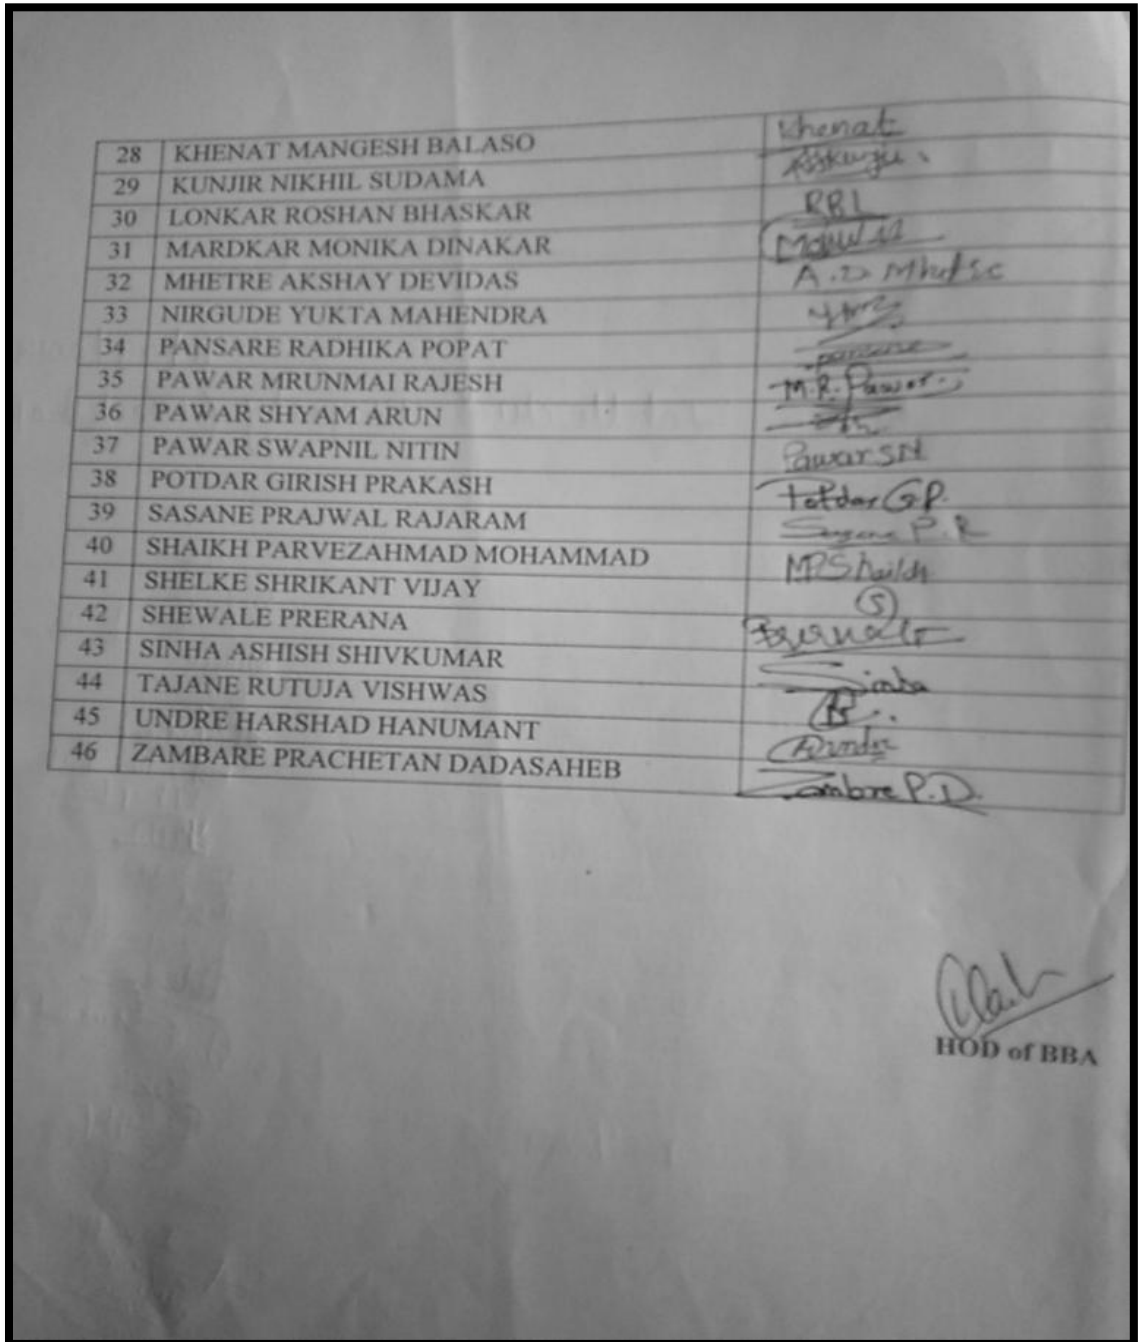 28 KHENAT MANGESH BALASO Khenat
29 KUNJIR NIKHIL SUDAMA
30 LONKAR ROSHAN BHASKAR RBL
31 MARDKAR MONIKA DINAKAR
32 MHETRE AKSHAY DEVIDAS A.D Mhetre
33 NIRGUDE YUKTA MAHENDRA
34 PANSARE RADHIKA POPAT pansare
35 PAWAR MRUNMAI RAJESH M.R. Pawar
36 PAWAR SHYAM ARUN
37 PAWAR SWAPNIL NITIN Pawar SN
38 POTDAR GIRISH PRAKASH Potdar G.P.
39 SASANE PRAJWAL RAJARAM Sasane P.R
40 SHAIKH PARVEZAHMAD MOHAMMAD MPShaikh
41 SHELKE SHRIKANT VIJAY S
42 SHEWALE PRERANA
43 SINHA ASHISH SHIVKUMAR Sinha
44 TAJANE RUTUJA VISHWAS
45 UNDRE HARSHAD HANUMANT
46 ZAMBARE PRACHETAN DADASAHEB Zambre P.D.
HOD of BBA